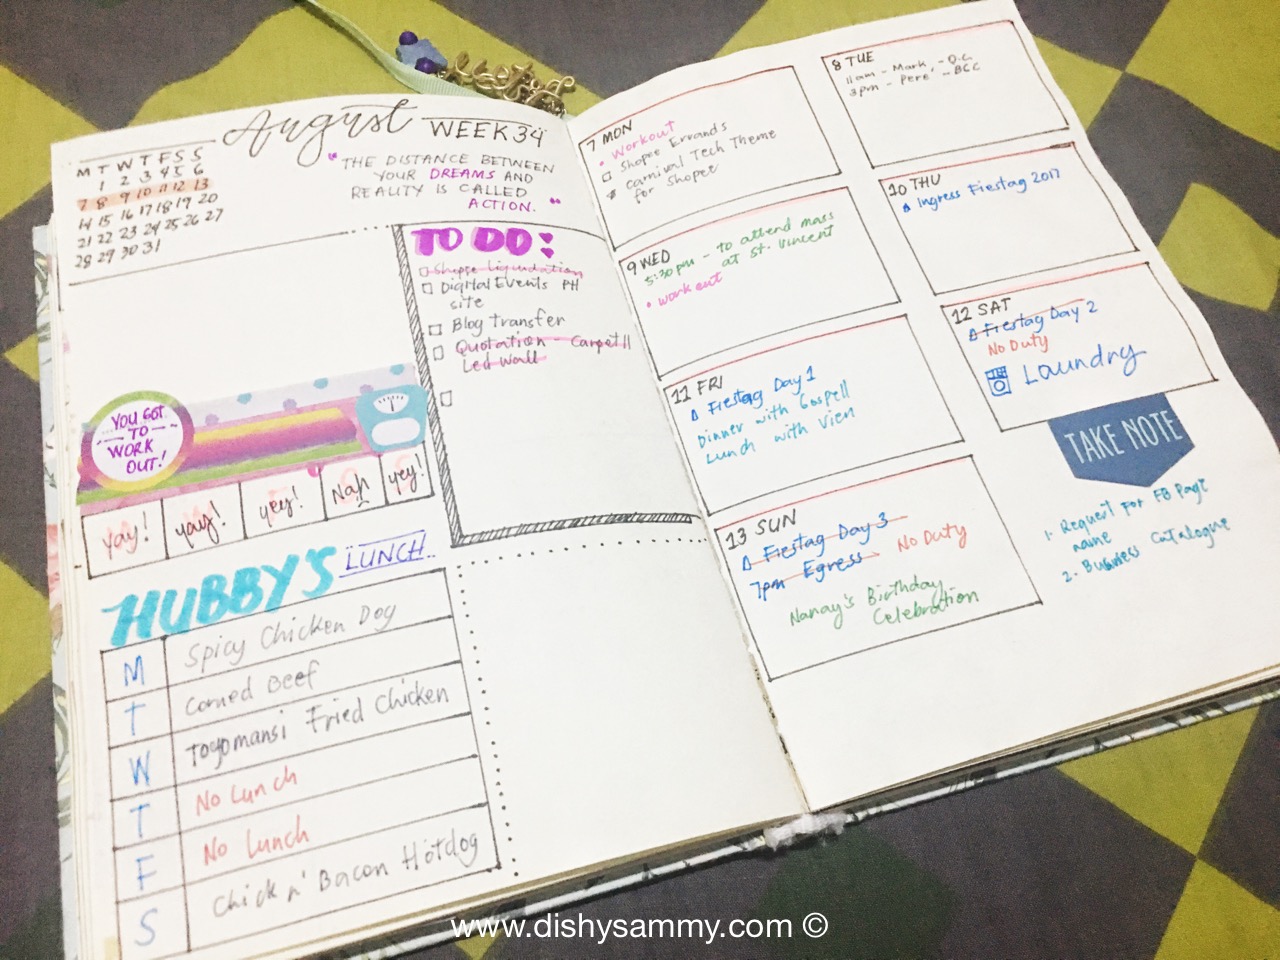 August WEEK 34
M T W T F S S
1 2 3 4 5 6
7 8 9 10 11 12 13
14 15 16 17 18 19 20
21 22 23 24 25 26 27
28 29 30 31
"THE DISTANCE BETWEEN
YOUR DREAMS AND
REALITY IS CALLED
ACTION."
TO DO:
Shopee Liquidation
Digital Events PH
site
Blog Transfer
Quotation - Carpet
Led Wall
YOU GOT
TO
WORK
OUT!
yay! yay! yey! Nah yey!
HUBBY'S LUNCH..
M Spicy Chicken Dog
T Corned Beef
W Toyomansi Fried Chicken
T No Lunch
F No Lunch
S Chick n' Bacon Hotdog
7 MON
Workout
Shopee Errands
Carnival Tech Theme
for Shopee
8 TUE
11am - Mark - Q.C
3pm - Pere - BCC
9 WED
5:30 pm - to attend mass
at St. Vincent
workout
10 THU
Ingress Fiestag 2017
11 FRI
Fiestag Day 1
Dinner with Gospell
Lunch with Vien
12 SAT
Fiestag Day 2
No Duty
Laundry
13 SUN
Fiestag Day 3
7pm Egress No Duty
Nanay's Birthday
Celebration
TAKE NOTE
1. Request for FB Page
name
2. Business Catalogue
www.dishysammy.com ©